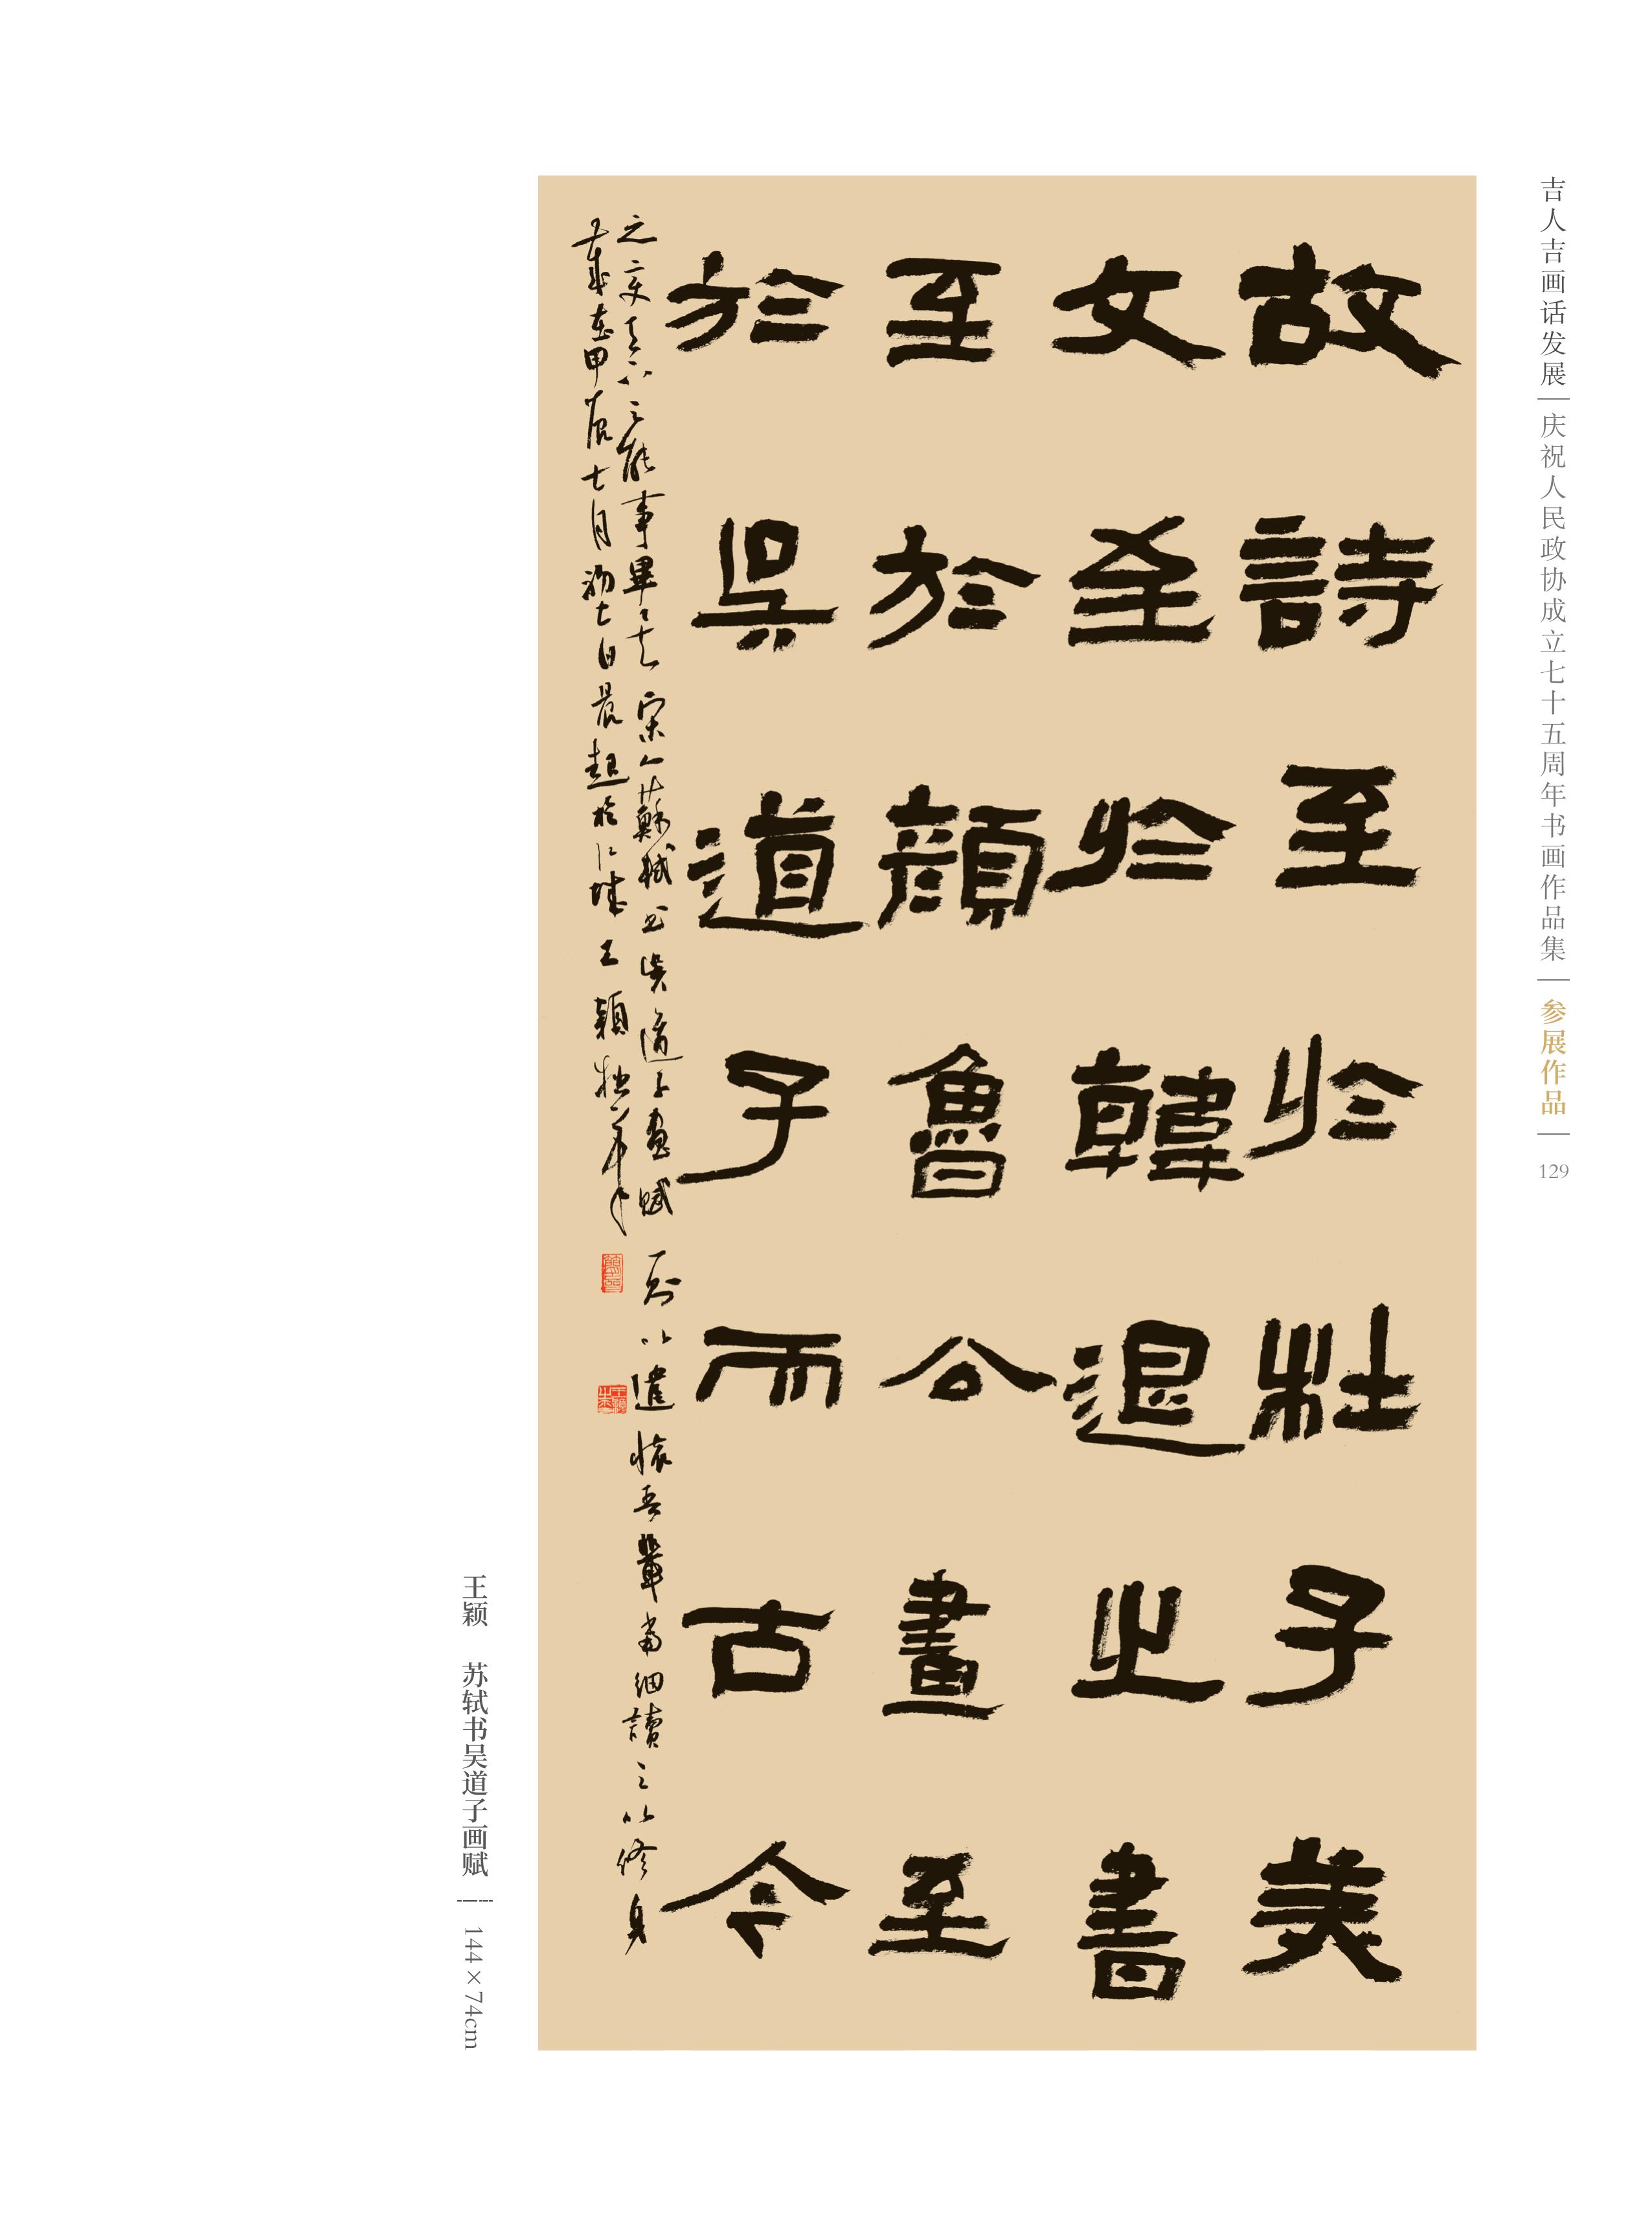 吉人吉画话发展 庆祝人民政协成立七十五周年书画作品集 参展作品 129
故詩至於杜子美
文至於韓退之書
至於顏魯公畫至
於吳道子而古今
之變天下之能事畢矣 宋人蘇軾書吳道子畫賦 一則以遣懷吾輩當細讀之以修身
歲在甲辰七月初七日晨起於江城 王穎拙筆
王颖 苏轼书吴道子画赋 144×74cm